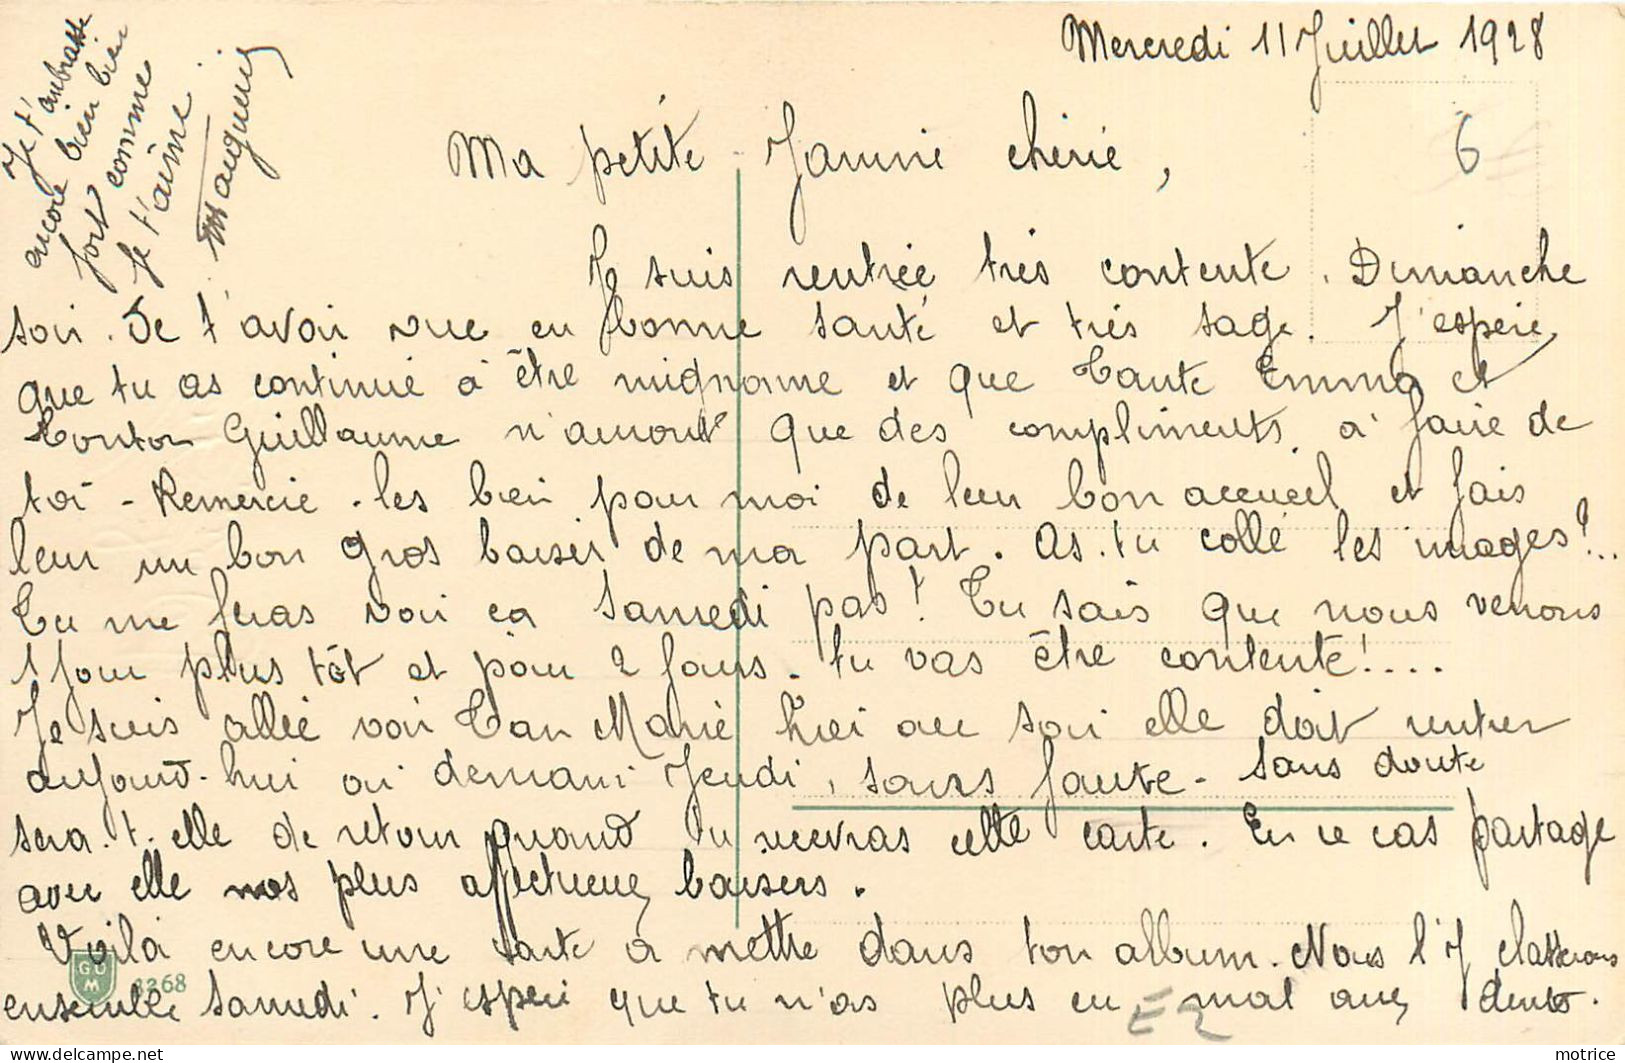 Mercredi 11 Juillet 1928
6
Ma petite Jannie chérie,
Je suis rentrée très contente. Dimanche
soir. De t'avoir vue en bonne santé et très sage. J'espère
que tu as continué à être mignonne et que Tante Emma et
Tonton Guillaume n'auront que des compliments à faire de
toi - Remercie - les bien pour moi de leur bon accueil et fais
leur un bon gros baiser de ma part. As-tu collé les images?...
Tu me feras voir ça Samedi pas! Tu sais que nous venons
1 jour plus tôt et pour 2 jours. tu vas être contente!....
Je suis allée voir Tan Marie hier au soir elle doit rentrer
aujourd-hui ou demain Jeudi, sans faute - sans doute
sera-t-elle de retour quand tu recevras cette carte. En ce cas partage
avec elle nos plus affectueux baisers.
Voilà encore une carte à mettre dans ton album. Nous l'y classerons
ensemble Samedi. J'espère que tu n'as plus eu mal aux dents.
Je t'embrasse
encore bien bien
fort comme
je t'aime.
GOM
3268
E2
delcampe.net
motrice